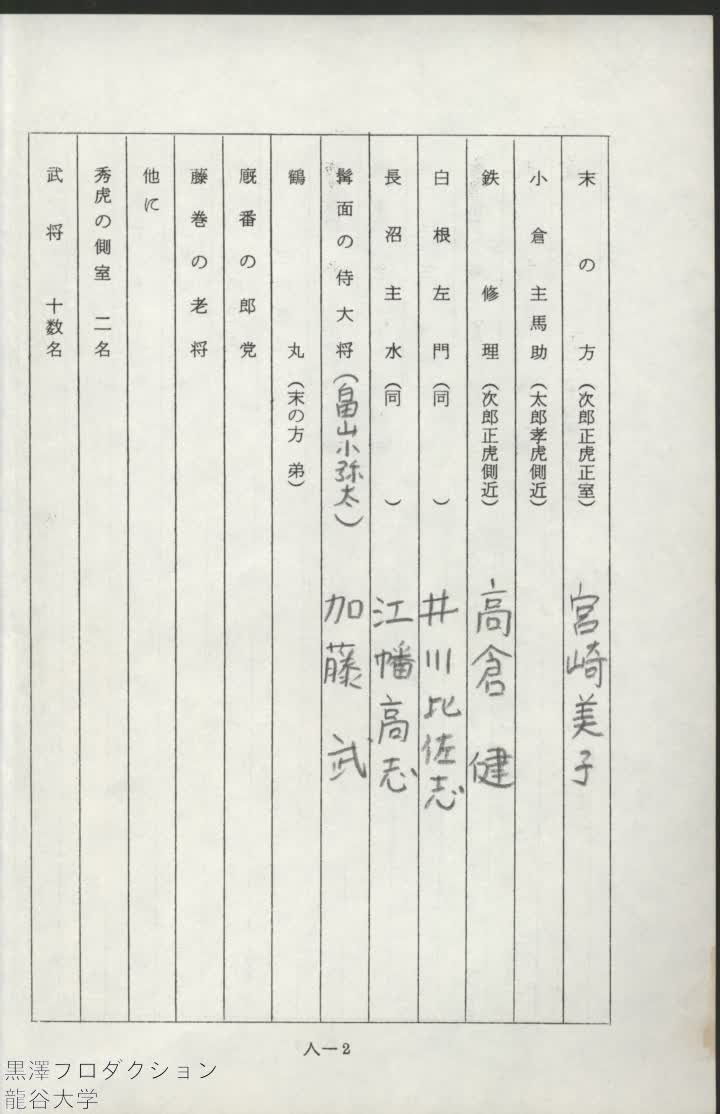 末の方（次郎正虎正室）宮崎美子
小倉主馬助（太郎孝虎側近）
鉄修理（次郎正虎側近）高倉健
白根左門（同）井川比佐志
長沼主水（同）江幡高志
髯面の侍大将（畠山小弥太）加藤武
鶴丸（末の方 弟）
厩番の郎党
藤巻の老将
他に
秀虎の側室 二名
武将 十数名
人－2
黒澤プロダクション
龍谷大学